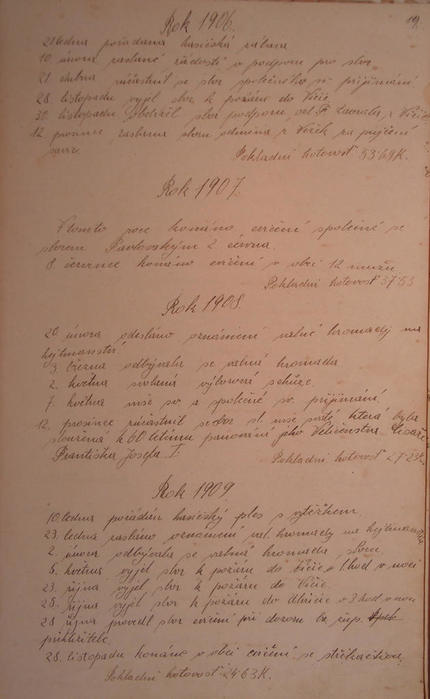 19.
Rok 1906.
21 ledna pořádána hasičská zábava
10 února zaslané žádosti o podporu pro sbor
21 dubna súčastnil se sbor společného sv. přijímání
28. listopadu vyjel sbor k požáru do Věžic
30. listopadu obdržel sbor podporu od F. z Věžic
12 prosince zaslána sboru odměna z Věžek za půjčení
Pokladní hotovost 53·64K.
Rok 1907.
V tomto roce konáno cvičení společné se
sborem Pavlovským 2 června.
8 července konáno cvičení v obci 12 mužů
Pokladní hotovost 37·53
Rok 1908
20 února odesláno oznámení valné hromady na
hejtmanství.
3 března odbývala se valná hromada
2. května svolaná výborová schůze.
7. května mše sv. a společné sv. přijímání.
12. prosince súčastnil se sbor sl. mše svaté která byla
sloužená k 60 letému panování jeho Veličenstva Císaře
Františka Josefa I.
Pokladní hotovost 27·23K.
Rok 1909.
10 ledna pořádán hasičský ples s výtěžkem
23. ledna zasláno oznámení val. hromady na hejtmanství
2. února odbývala se valná hromada
5. května vyjel sbor k požáru do Věžic o 1 hod v noci
23. října vyjel sbor k požáru do Věžic.
25. října vyjel sbor k požáru do o 3 hod v noci
28 října provedl sbor cvičení při dozoru žup.
28. listopadu konáno v obci cvičení se stříkačkou.
Pokladní hotovost 24·63K.